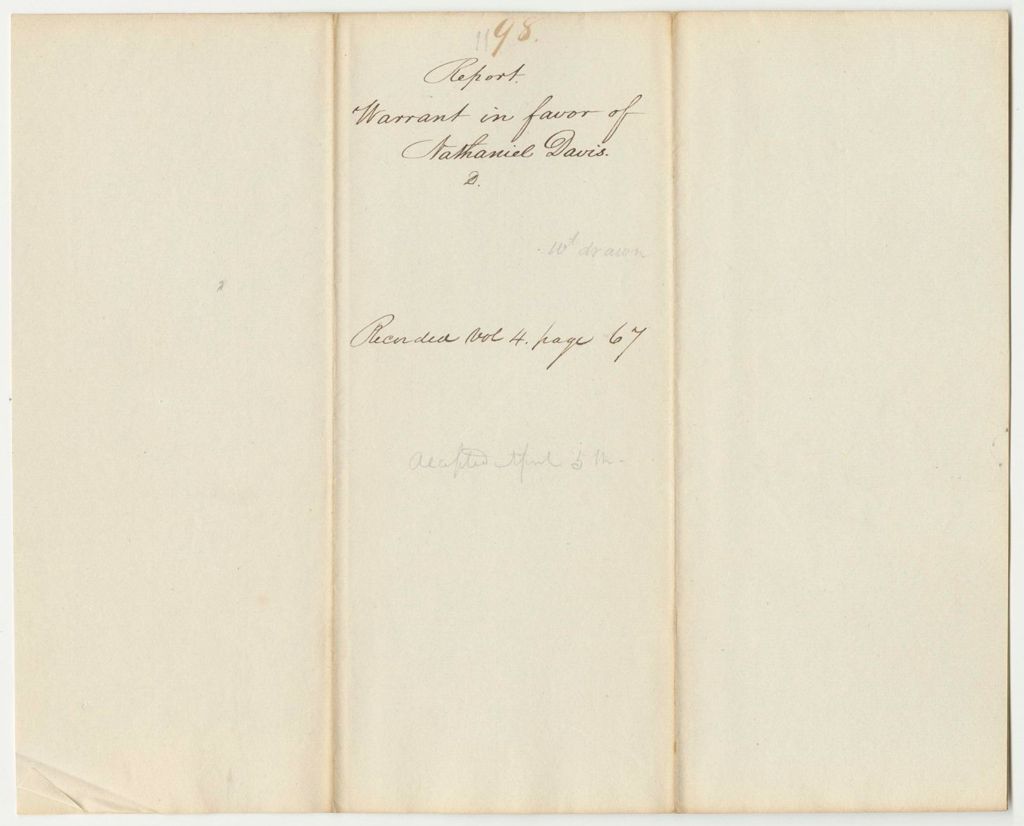 1198.
Report.
Warrant in favor of
Nathaniel Davis.
D.
Wt drawn
Recorded Vol 4. page 67
Accepted April 5th